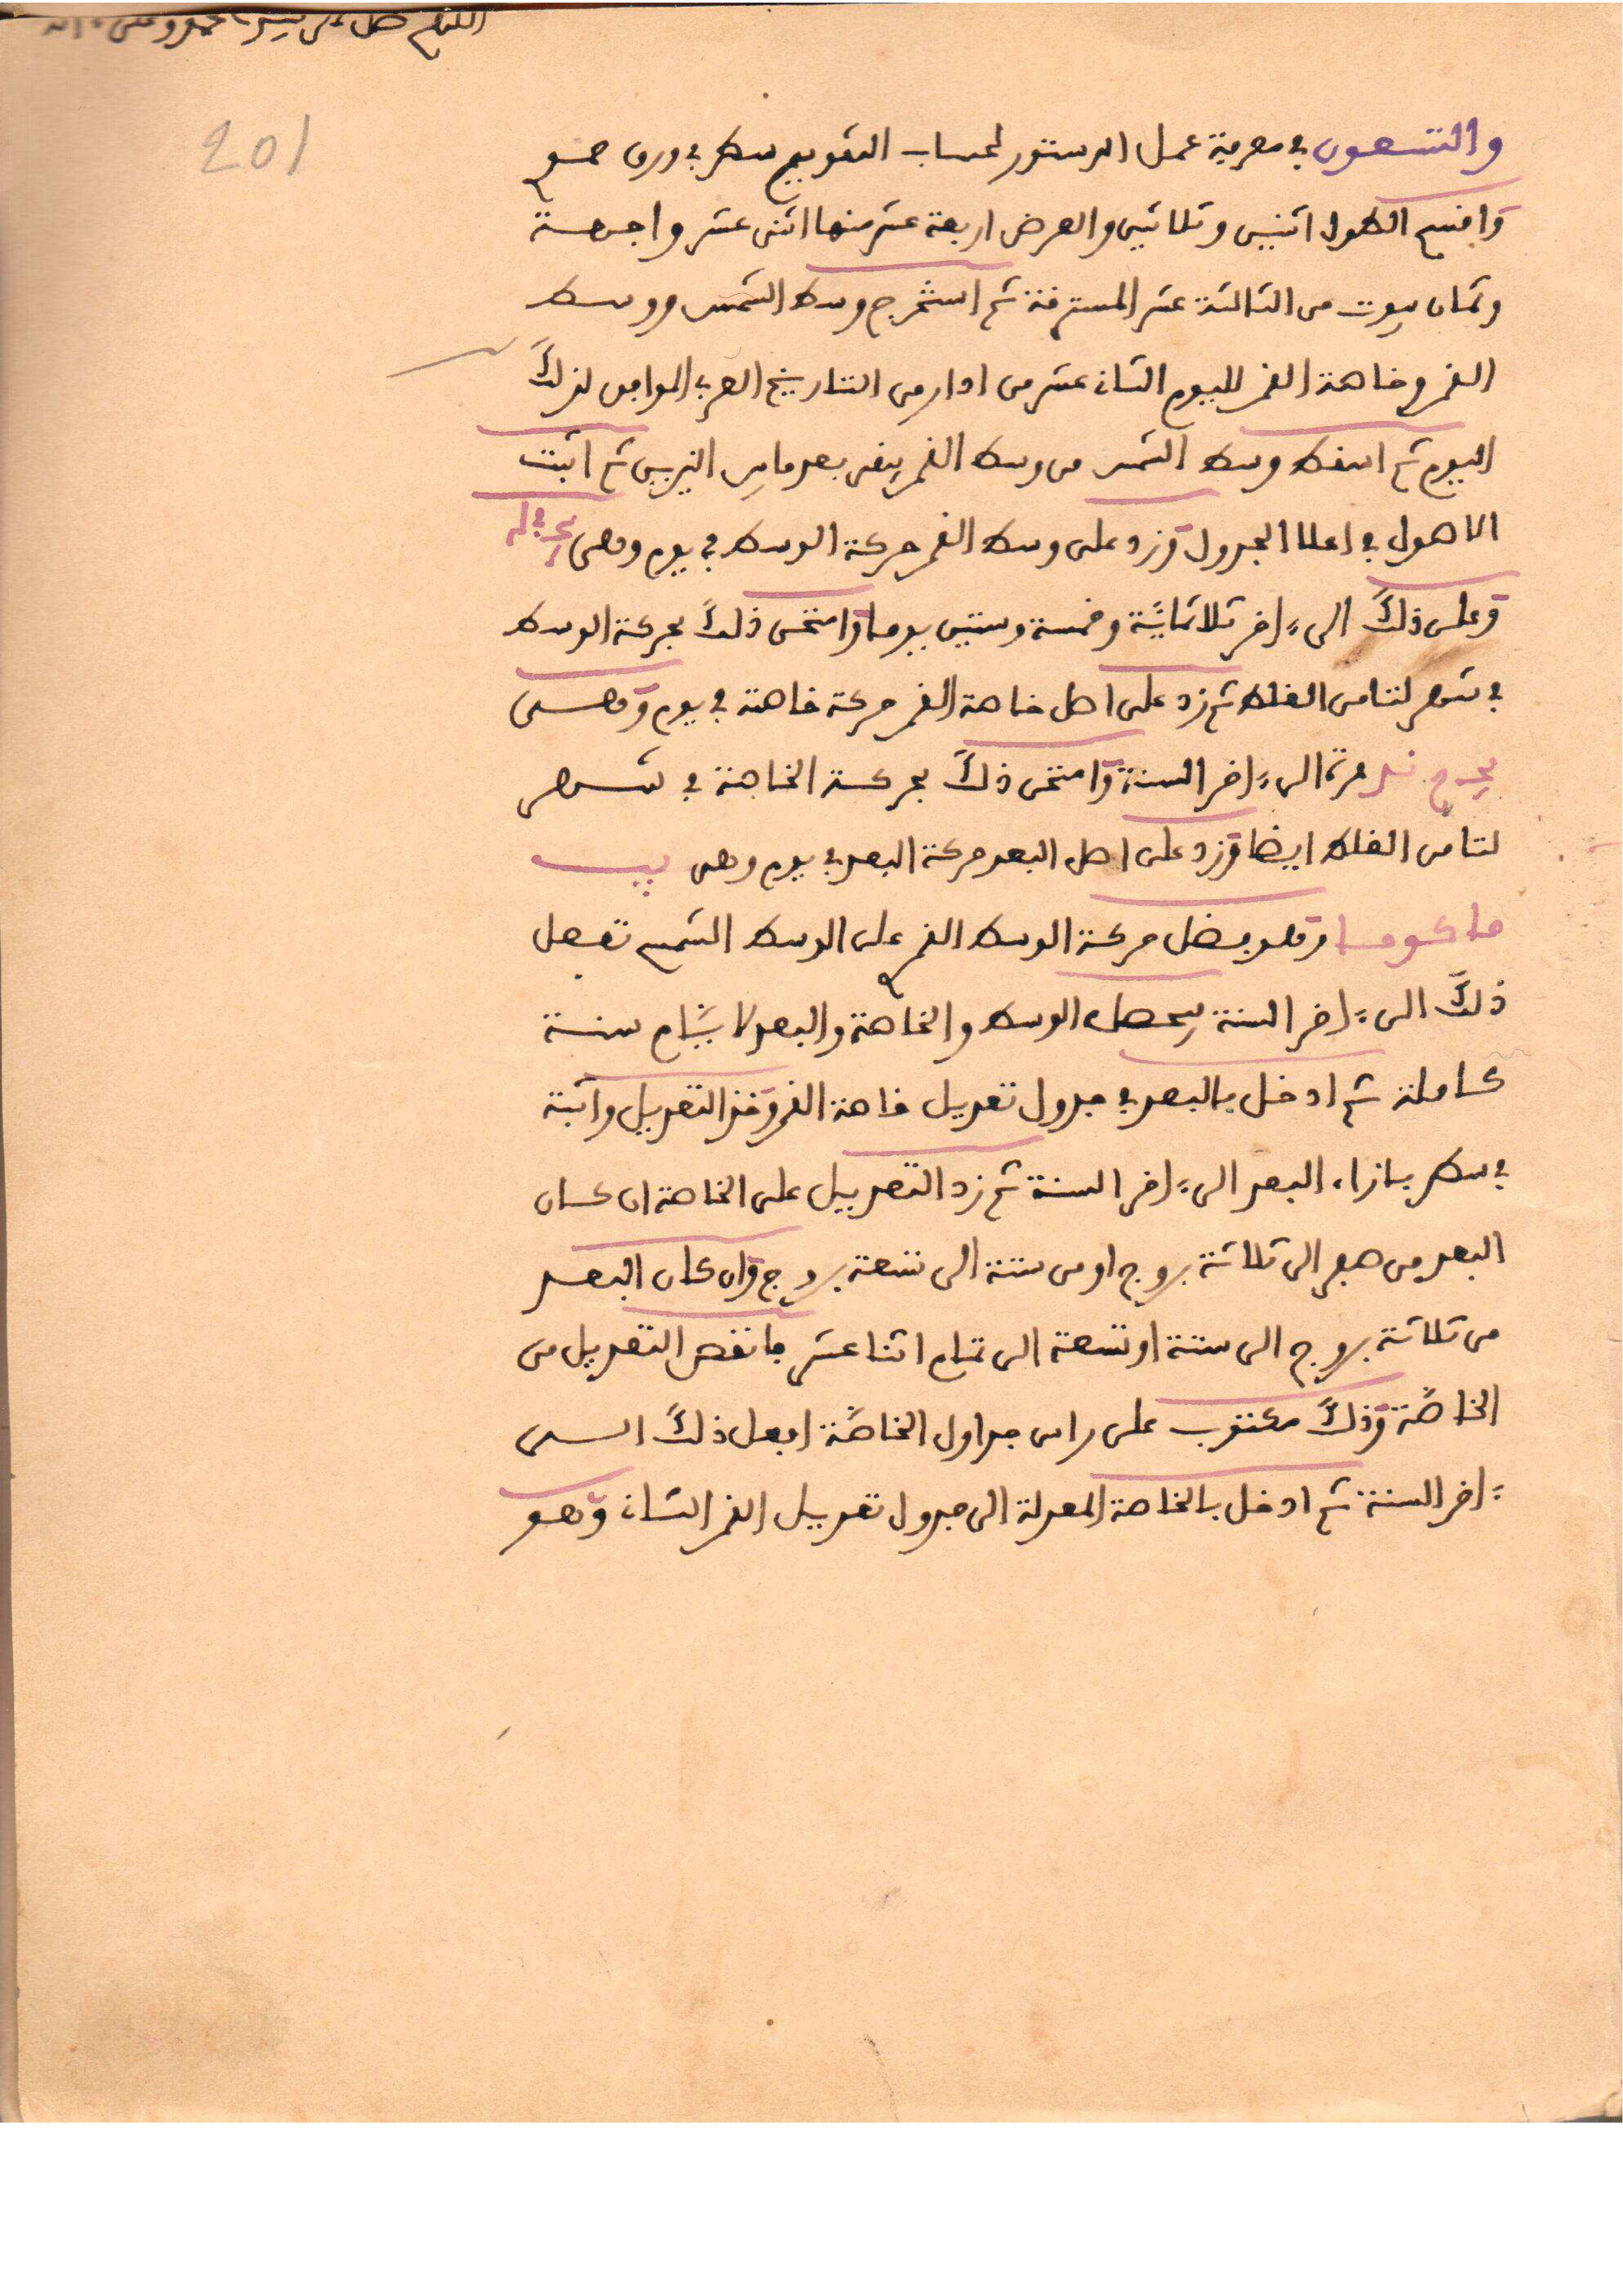 اللهم صل على سيدنا محمد وعلى اله
201
والتسعون في معرفة عمل الدستور لحساب التقويم سطر في ورق
واقسم الطول اثنين وثلاثين والعرض اربعة عشر منها اثنى عشر واجهة
وثمان بيوت من الثالثة عشر المسترقة ثم استخرج وسط الشمس ووسط
القمر وخاصة القمر لليوم الثان عشر من ادار من التاريخ العربي الموافق لذلك
اليوم ثم اسقط وسط الشمس من وسط القمر يبقى بعد ما بين النيرين ثم اثبت
الاصول في اعلا الجدول وزد على وسط القمر حركة الوسط في يوم وهى
وعلى ذلك الى ءاخر ثلاثمائية وخمسة وستين يوما وامتحن ذلك بحركة الوسط
في شهر لتامن الغلط ثم زد على اصل خاصة القمر حركة خاصة في يوم وهى
مرة الى ءاخر السنة وامتحن ذلك بحركة الخاصة في شهر
لتامن الغلط ايضا وزد على اصل البعد حركة البعد في يوم وهى
وهو فضل حركة الوسط القمر على الوسط الشمس تفعل
ذلك الى ءاخر السنة يحصل الوسط والخاصة والبعد لايام سنة
كاملة ثم ادخل بالبعد في جدول تعديل خاصة القمر وخذ التعديل واثبته
في سطر بازاء البعد الى ءاخر السنة ثم زد التعديل على الخاصة ان كان
البعد من صفر الى ثلاثة بروج او من ستة الى تسعة بروج وان كان البعد
من ثلاثة بروج الى ستة او تسعة الى تمام اثنا عشر فانقص التعديل من
الخاصة وذلك مكتوب على راس جداول الخاصة افعل ذلك الى
ءاخر السنة ثم ادخل بالخاصة المعدلة الى جدول تعديل القمر الثان وهو